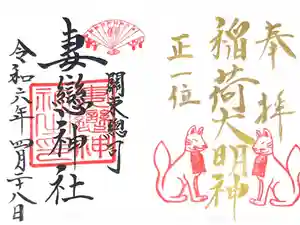 奉拝
稲荷大明神
正一位
關東惣司
妻戀神社
令和六年四月二十八日